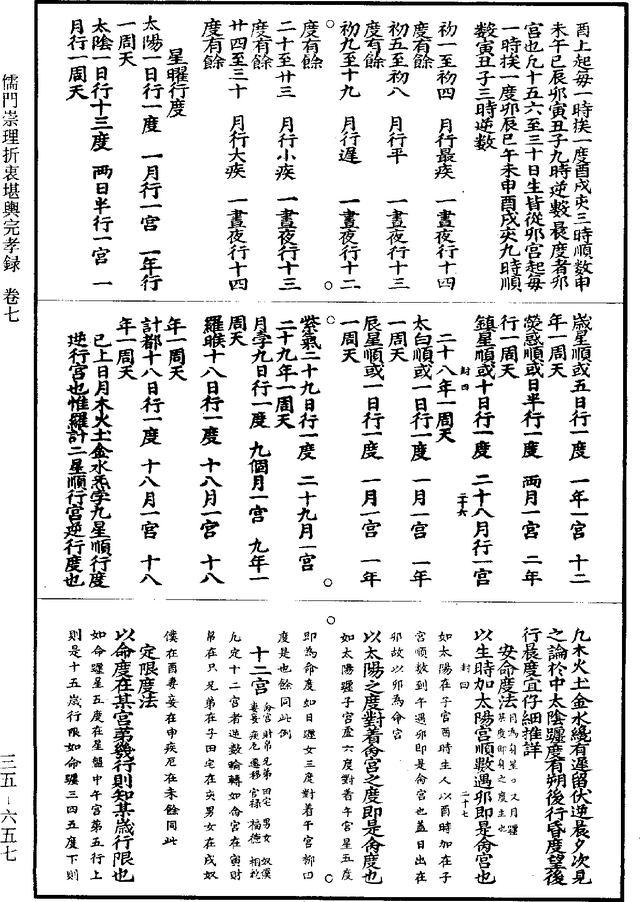 酉上起每一時挨一度酉戌亥三時順数申
未午巳辰卯寅丑子九時逆數晨度者卯
宮也凡十五六至三十日生皆從卯宮起每
一時挨一度卯辰巳午未申酉戌亥九時順
數寅丑子三時逆數
初一至初四　月行最疾　一晝夜行十四
度有餘
初五至初八　月行平　一晝夜行十三
度有餘
初九至十九　月行遲　一晝夜行十二
度有餘
二十至廿三　月行小疾　一晝夜行十三
度有餘
廿四至三十　月行大疾　一晝夜行十四
度有餘
星曜行度
太陽一日行一度　一月行一宮　一年行
一周天
太陰一日行十三度　兩日半行一宮　一
月行一周天
歲星順或五日行一度　一年一宮　十二
年一周天
熒惑順或日半行一度　兩月一宮　二年
行一周天
鎮星順或十日行一度　二十八月行一宮
封四　二十六
二十八年一周天
太白順或一日行一度　一月一宮　一年
一周天
辰星順或一日行一度　一月一宮　一年
一周天
紫氣二十九日行一度　二十九月一宮
二十九年一周天
月孛九日行一度　九個月一宮　九年一
周天
羅睺十八日行一度　十八月一宮　十八
年一周天
計都十八日行一度　十八月一宮　十八
年一周天
已上日月木火土金水炁孛九星順行度
逆行宮也惟羅計二星順行宮逆行度也
凡木火土金水纔有遲留伏逆晨夕次見
之論於中太陰躔度有朔後行昏度望後
行晨度宜仔細推詳
安命度法
以生時加太陽宮順數遇卯即是命宮也
封四　二十七
如太陽在子宮酉時生人以酉時加在子
宮順數到午遇卯即是命宮也蓋日出在
卯故以卯為命宮
以太陽之度對着命宮之度即是命度也
如太陽躔子宮虛六度對着午宮星五度
即為命度如日躔女三度對着午宮柳口
度是也餘同此例
十二宮　命宮 財帛 兄弟 田宅 男女 奴僕
妻妾 疾厄 遷移 官祿 福德 相貌
凡定十二宮者逆數輪轉如命宮在寅財
帛在丑兄弟在子田宅在亥男女在戌奴
僕在酉妻妾在申疾厄在未餘同此
定限度法
以命度在某宮第幾行則知某歲行限也
如命躔星五度在星盤中午宮第五行上
則是十五歲行限如命躔三四五度下則
儒門崇理折衷堪輿完孝録　卷七
三五－六五七